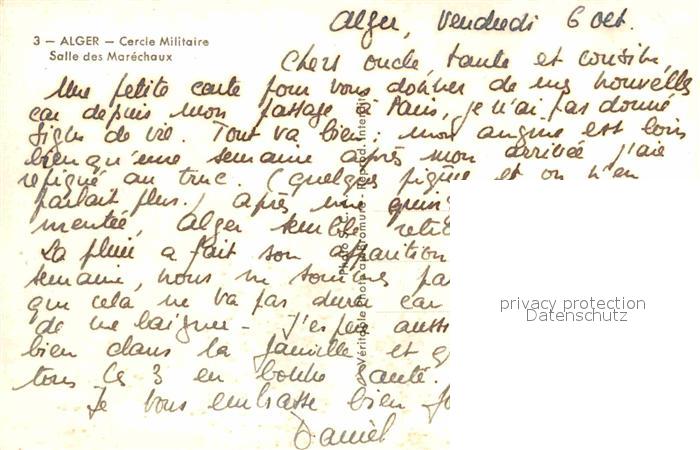 Alger, Vendredi 6 Oct.
3 — ALGER — Cercle Militaire
Salle des Maréchaux
Chers oncle, tante et cousine,
Une petite carte pour vous donner de mes nouvelles
car depuis mon passage à Paris, je n'ai pas donné
signe de vie. Tout va bien : mon angine est loin
bien qu'une semaine après mon arrivée j'aie
repiqué au truc. (Quelques piqures et on n'en
parlait plus.) Après une quin
mentée, Alger semble
La pluie a fait son apparition
semaine, nous ne sommes pa
que cela ne va pas durer car
de me baigner - J'espère auss
bien dans la famille et
tous les 3 en bonne santé.
Je vous embrasse bien fo
Daniel
Véritable Photo au Bromure - Reprod. Interdite
privacy protection
Datenschutz